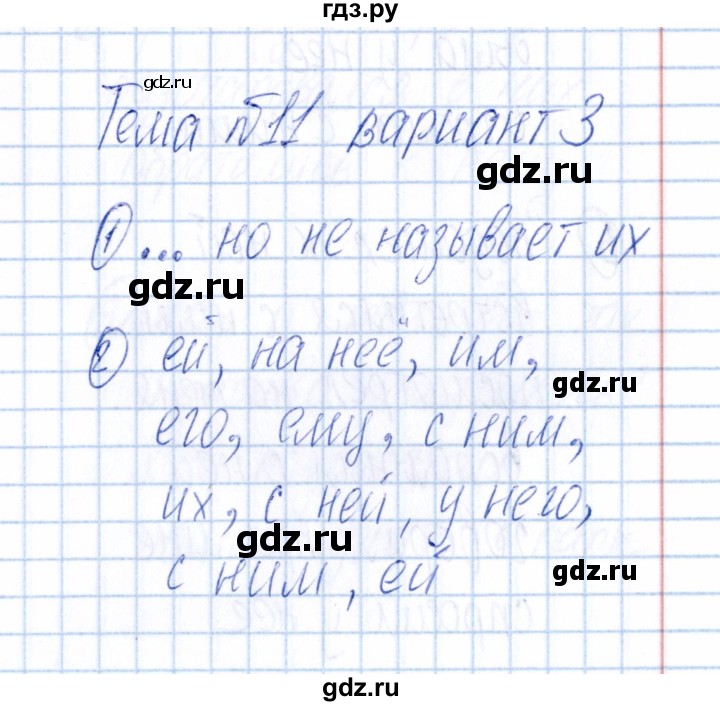 гдз.ру
gdz.ru
Тема №11 вариант 3
gdz.ru
① ... но не называет их
gdz.ru
② ей, на неё, им,
gdz.ru
его, ему, с ним,
их, с ней, у него,
gdz.ru
gdz.ru
с ним, ей
gdz.ru